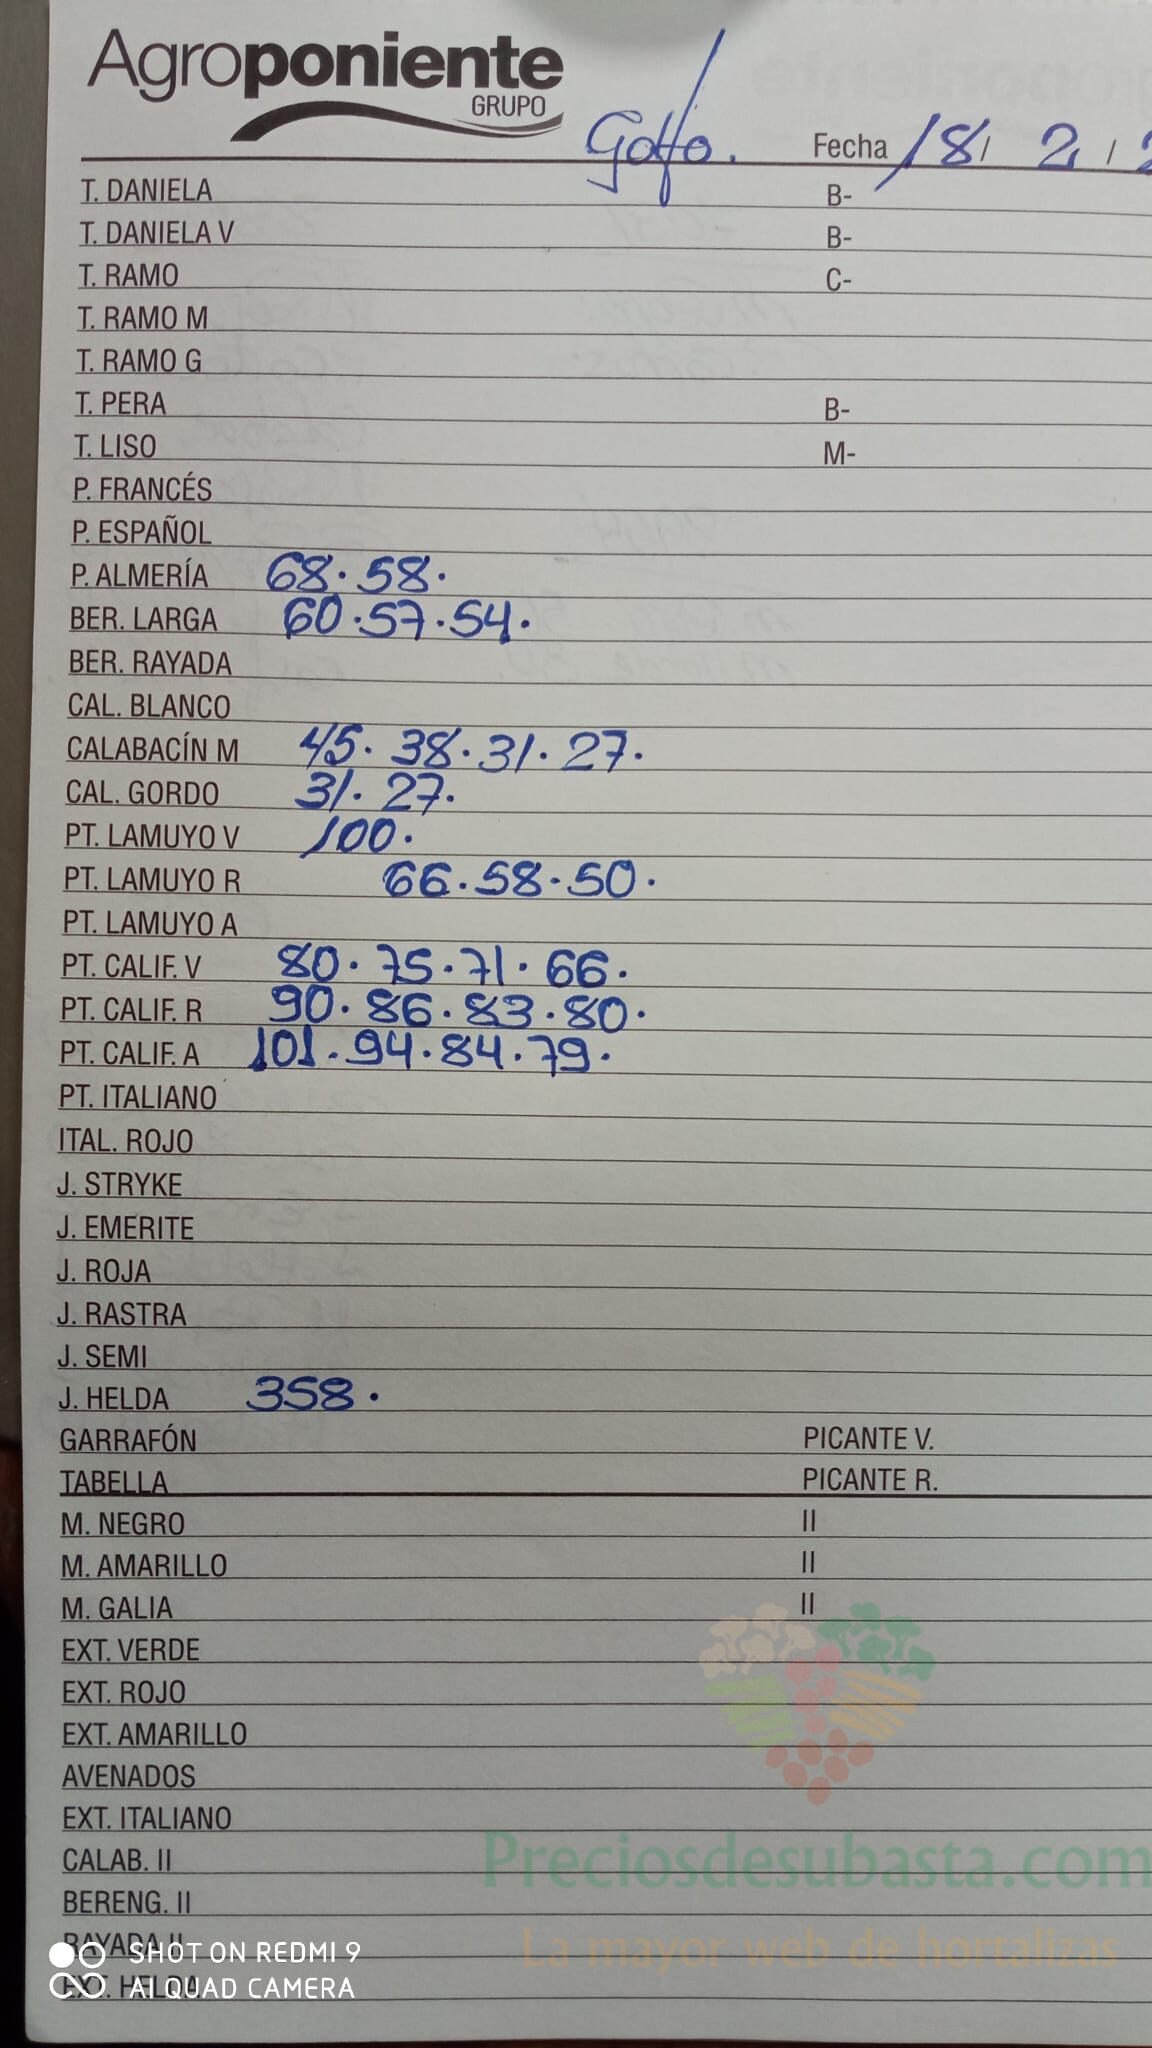 Agroponiente
GRUPO
Golfo. Fecha 18/ 2 /
T. DANIELA B-
T. DANIELA V B-
T. RAMO C-
T. RAMO M
T. RAMO G
T. PERA B-
T. LISO M-
P. FRANCÉS
P. ESPAÑOL
P. ALMERÍA 68. 58.
BER. LARGA 60.57.54.
BER. RAYADA
CAL. BLANCO
CALABACÍN M 45. 38. 31. 27.
CAL. GORDO 31. 27.
PT. LAMUYO V 100.
PT. LAMUYO R 66.58.50.
PT. LAMUYO A
PT. CALIF. V 80. 75. 71. 66.
PT. CALIF. R 90. 86. 83. 80.
PT. CALIF. A 101. 94. 84. 79.
PT. ITALIANO
ITAL. ROJO
J. STRYKE
J. EMERITE
J. ROJA
J. RASTRA
J. SEMI
J. HELDA 358.
GARRAFÓN PICANTE V.
TABELLA PICANTE R.
M. NEGRO II
M. AMARILLO II
M. GALIA II
EXT. VERDE
EXT. ROJO
EXT. AMARILLO
AVENADOS
EXT. ITALIANO
CALAB. II
Preciosdesubasta.com
BERENG. II
RAYADA II
La mayor web de hortalizas
SHOT ON REDMI 9
EXT. HELDA
AI QUAD CAMERA